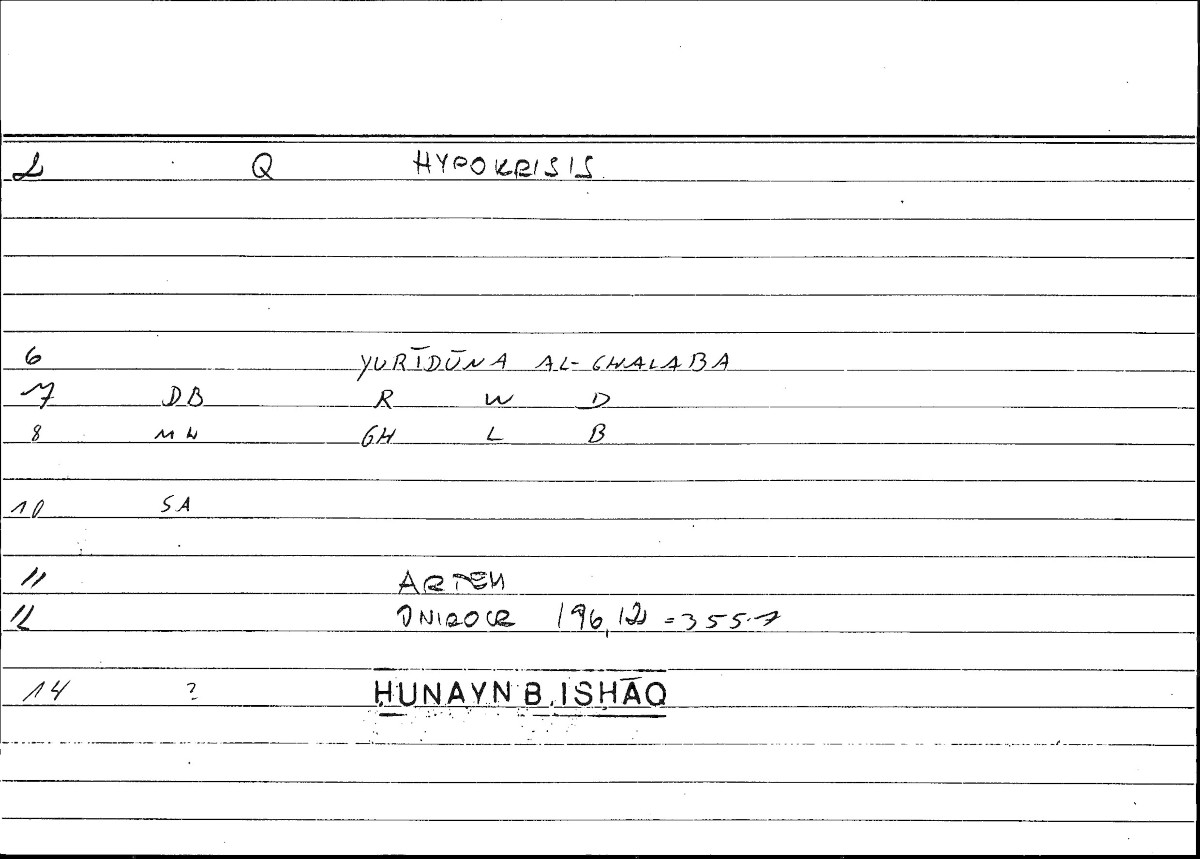 2 Q HYPOKRISIS
6 YURĪDŪNA AL-GHALABA
7 DB R W D
8 MW GH L B
10 SA
11 ARTEM
12 ONIROCR 196,12 = 355.7
14 ? ḤUNAYN B. ISḤĀQ